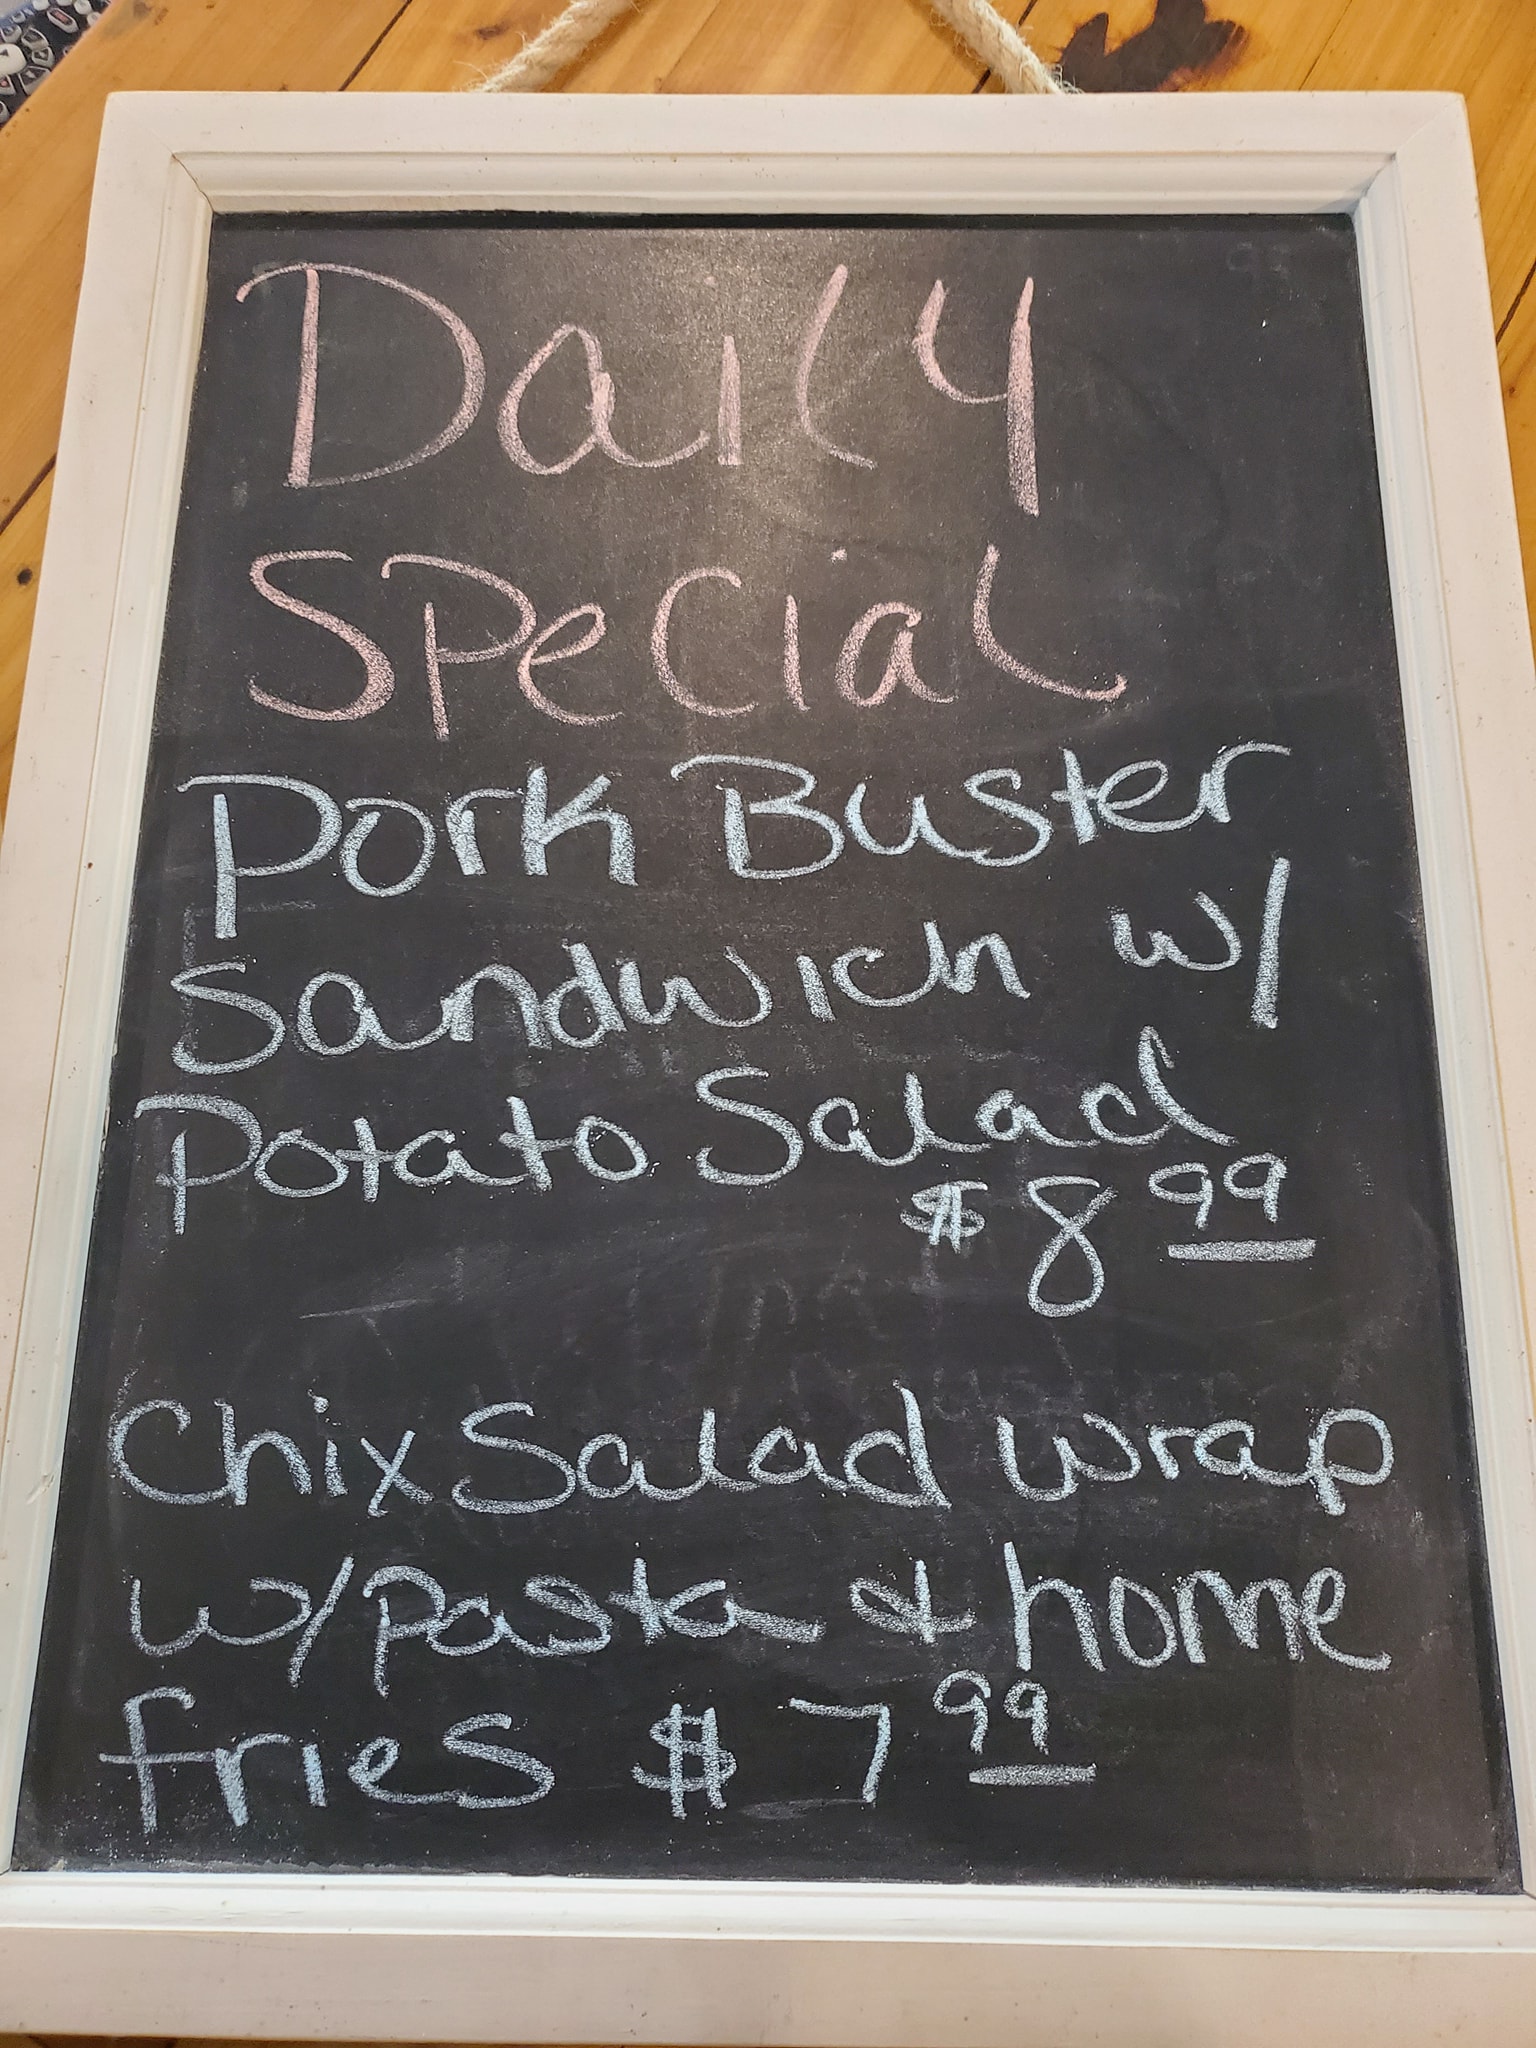 Daily
Special
Pork Buster
Sandwich w/
Potato Salad
$8.99
Chix Salad wrap
w/pasta & home
fries $7.99